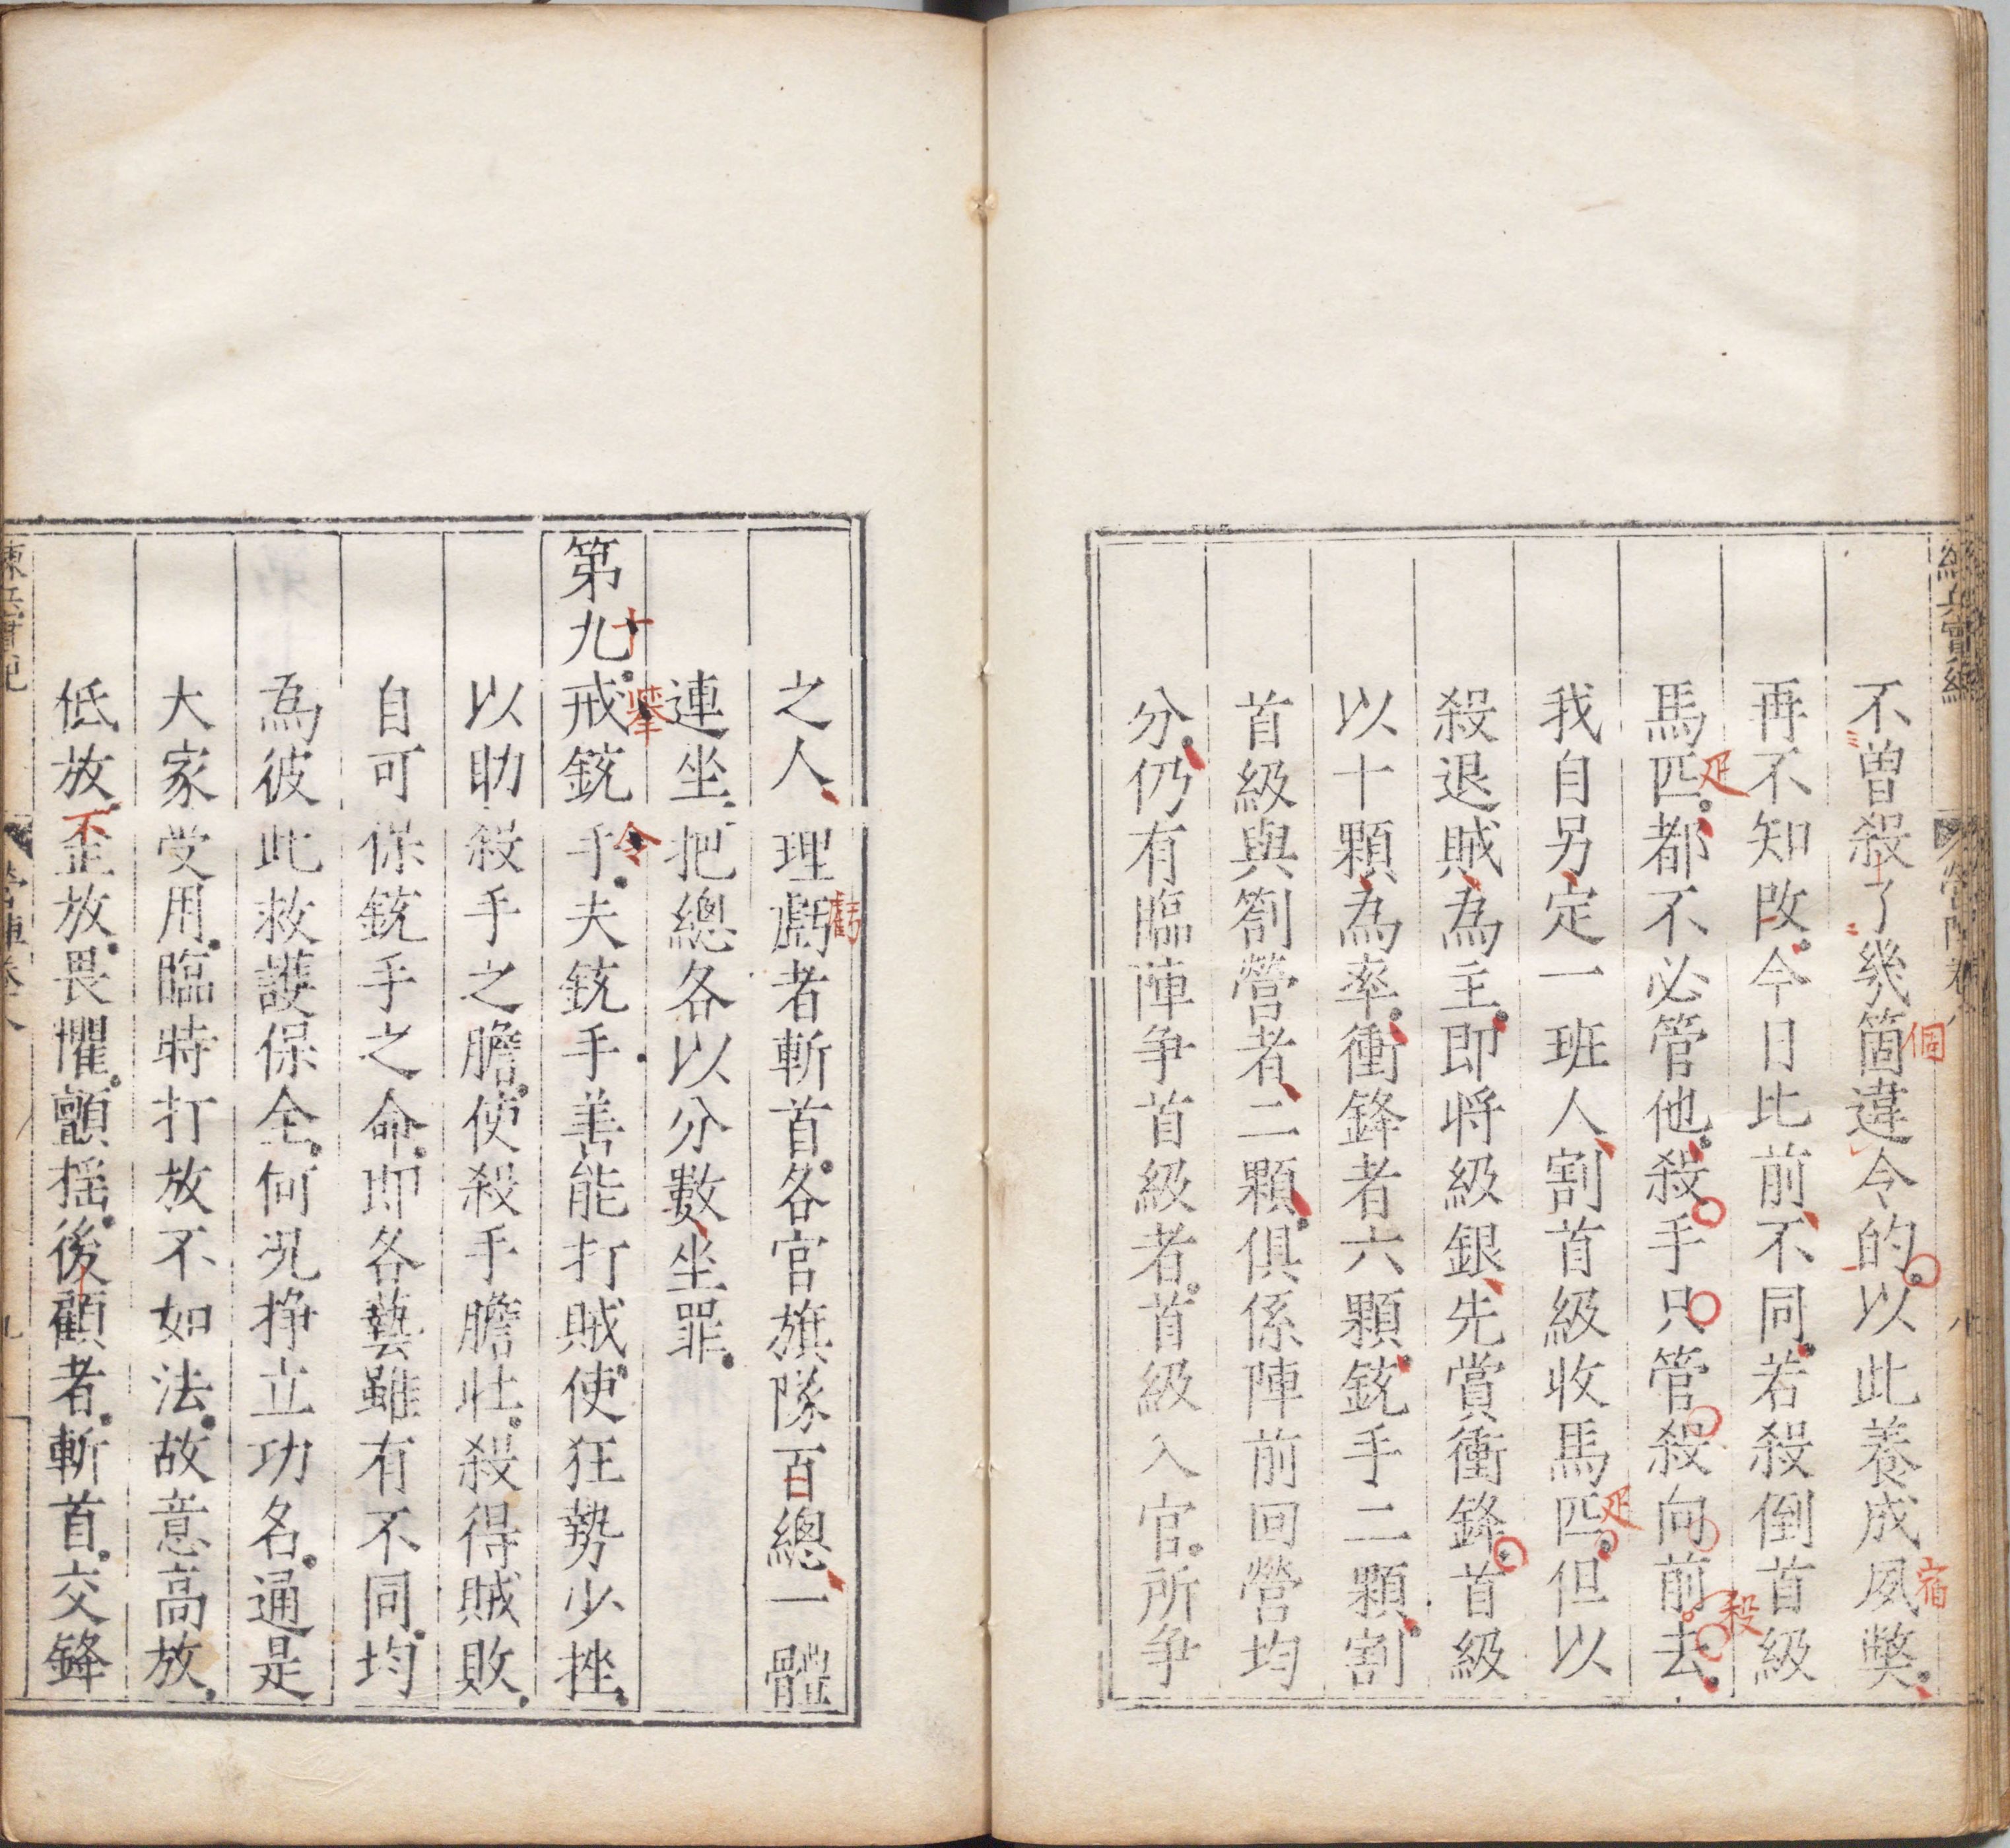 不曾殺了幾箇違令的以此養成夙獘
再不知改今日比前不同若殺倒首級
馬匹都不必管他殺手只管殺向前去
我自另定一班人割首級收馬匹但以
殺退賊為主即将級銀先賞衝鋒首級
以十顆為率衝鋒者六顆銃手二顆割
首級與劄營者二顆俱係陣前回營均
分仍有臨陣争首級者首級入官所争
之人理虧者斬首各官旗隊百總一體
連坐把總各以分數坐罪
第九戒銃手夫銃手善能打賊使狂勢少挫
以助殺手之膽使殺手膽壮殺得賊敗
自可保銃手之命即各藝雖有不同均
為彼此救護保全何况掙立功名通是
大家受用臨時打放不如法故意高放
低放歪放畏懼顫揺後顧者斬首交鋒
十
挐
令
虧
不
個
宿
疋
殺
疋